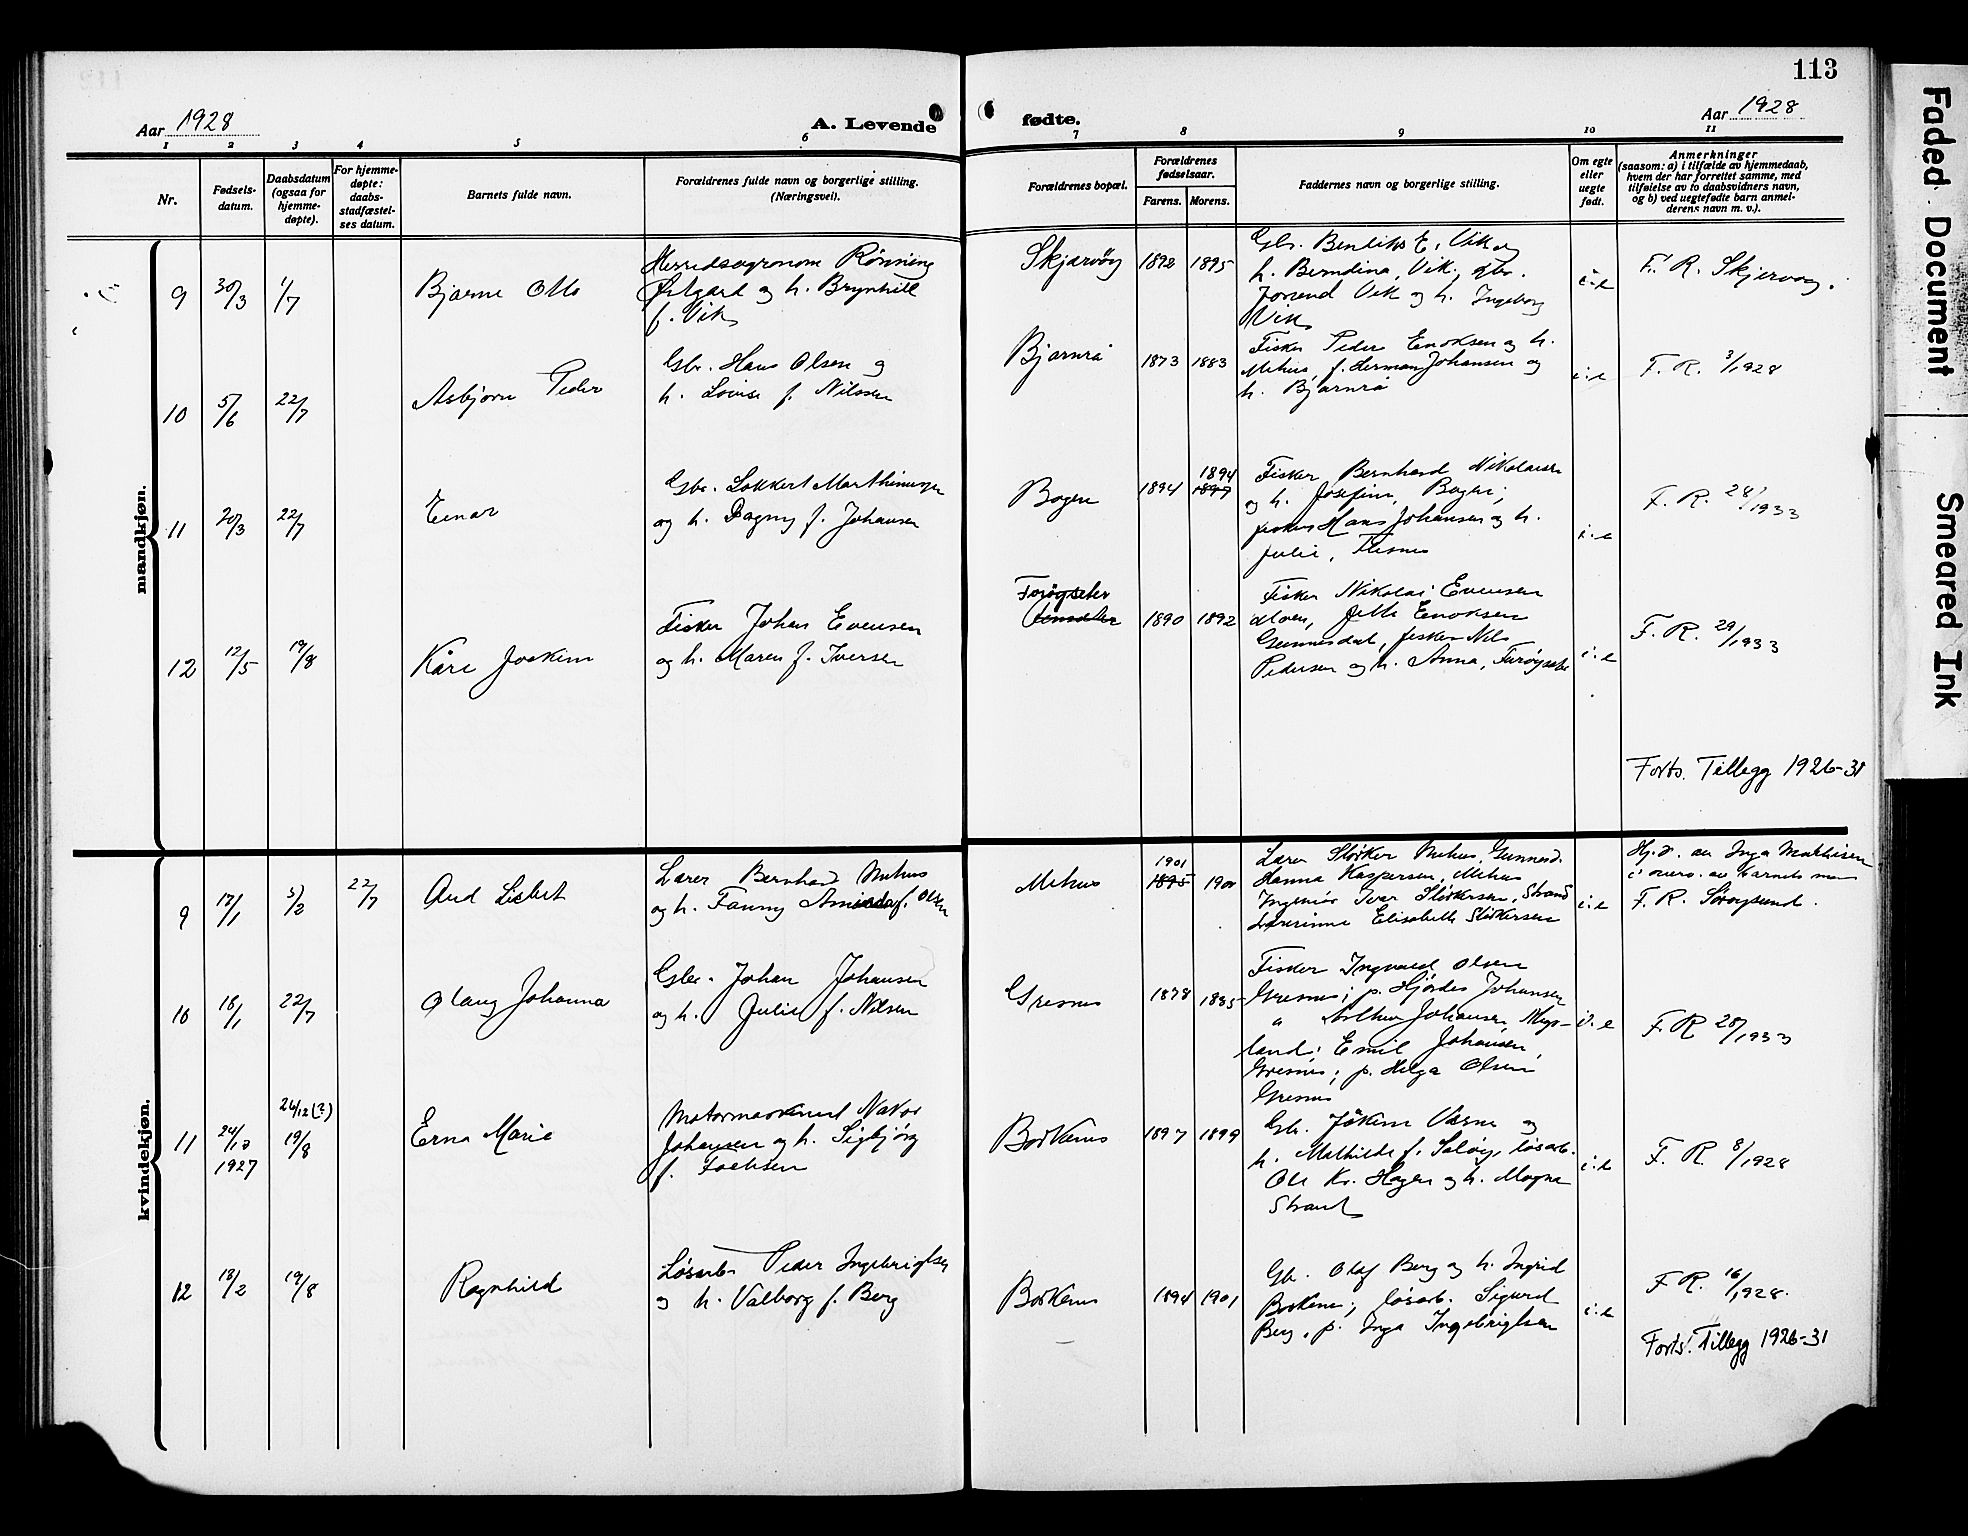 113
Aar 1928
A. Levende
fødte.
Aar 1928
1 2 3 4 5 6 7 8 9 10 11
Nr.
Fødsels-
datum.
Daabsdatum
(ogsaa for
hjemme-
døpte).
For hjemme-
døpte:
daabs-
stadfæstel-
ses datum.
Barnets fulde navn.
Forældrenes fulde navn og borgerlige stilling.
(Næringsvei).
Forældrenes bopæl.
Forældrenes
fødselsaar.
Farens. Morens.
Faddernes navn og borgerlige stilling.
Om egte
eller
uegte
født.
Anmerkninger
(saasom: a) i tilfælde av hjemmedaab,
hvem der har forrettet samme, med
tilføielse av to daabsvidners navn,
og b) ved uegtefødte barn anmel-
derens navn m. v.).
mandkjøn.
9 30/3 1/7
Bjarne Otto
Herredsagronom Rönning
Østgård og h. Brynhild
f. Vik
Skjærvöy
1892 1895
Gbr. Bendiks E. Vik og
h. Berndina, Vik, gbr.
Vik og h. Ingeborg
Vik
i.e
F. R. Skjervöy.
10 5/6 22/7
Asbjørn Peder
Gbr. Hans Olsen og
h. Lovise f. Nilssen
Bjarnrå
1873 1883
Fisker Peder Enoksen og h.
Mehus, f. Herman Johansen og
h. Bjarnrå
i.e
F. R. 3/1928
11 20/3 22/7
Einar
Gbr. Lokkert Marthinussen
og h. Dagny f. Johansen
Bogen
1894
1894
1897
Fisker Bernhard Nikolaisen
og h. Josefine, Bogen;
fisker Hans Johansen og h.
Julie, Flesnes
i.e
F. R. 28/1933
12 12/5 19/8
Kåre Joakim
Fisker Johan Evensen
og h. Maren f. Iversen
Forøyseter
1890 1892
Fisker Nikolai Evensen
Moen, Jette Enoksen
Gunnesdal, fisker Nils
Pedersen og h. Anna, Forøyseter
i.e
F. R. 29/1933
Forts. Tillegg 1926-31
kvindekjøn.
9 17/1 5/2 22/7
Aud Lisbet
Lærer Bernhard Mehus
og h. Fanny Aminda f. Olsen
Mehus
1901
1895 1900
Lærer Störker Mehus, Gunnesd.
Hanna Kaspersen, Mehus
Ingeniör Iver Störkersen, Strand
Lærerinne Elisabeth Störkersen
i.e
Hj.d. av Inga Mathisen
i overv. av barnets mor
F. R. Söröysund.
10 18/1 22/7
Olaug Johanna
Gbr. Johan Johansen
og h. Julie f. Nilsen
Gresnes
1878 1885
Fisker Ingvald Olsen
Gresnes; p. Hjördis Johansen
" Arthur Johansen, Meyer-
land; Emil Johansen,
Gresnes; p. Helga Olsen
Gresnes
i.e
F. R 28/1933
11 24/12
1927
26/12 (?)
19/8
Erna Marie
Motormaskinist Nakor
Johansen og h. Sigbjørg
f. Joakimsen
Borkenes
1897 1899
Gbr. Jökim Værne og
h. Mathilde f. Saløy, lösarb.
Ole Kr. Hagen og h. Magna
Strand
i.e
F. R. 8/1928
12 18/2 19/8
Ragnhild
Løsarb. Peder Ingebrigtsen
og h. Valborg f. Berg
Borkenes
1894 1901
Gbr. Olaf Berg og h. Ingrid
Borkenes; lösarb. Sigurd
Berg, p. Inga Ingebrigtsen
i.e
F R. 16/1928.
Forts. Tillegg 1926-31
Faded Document
Smeared Ink